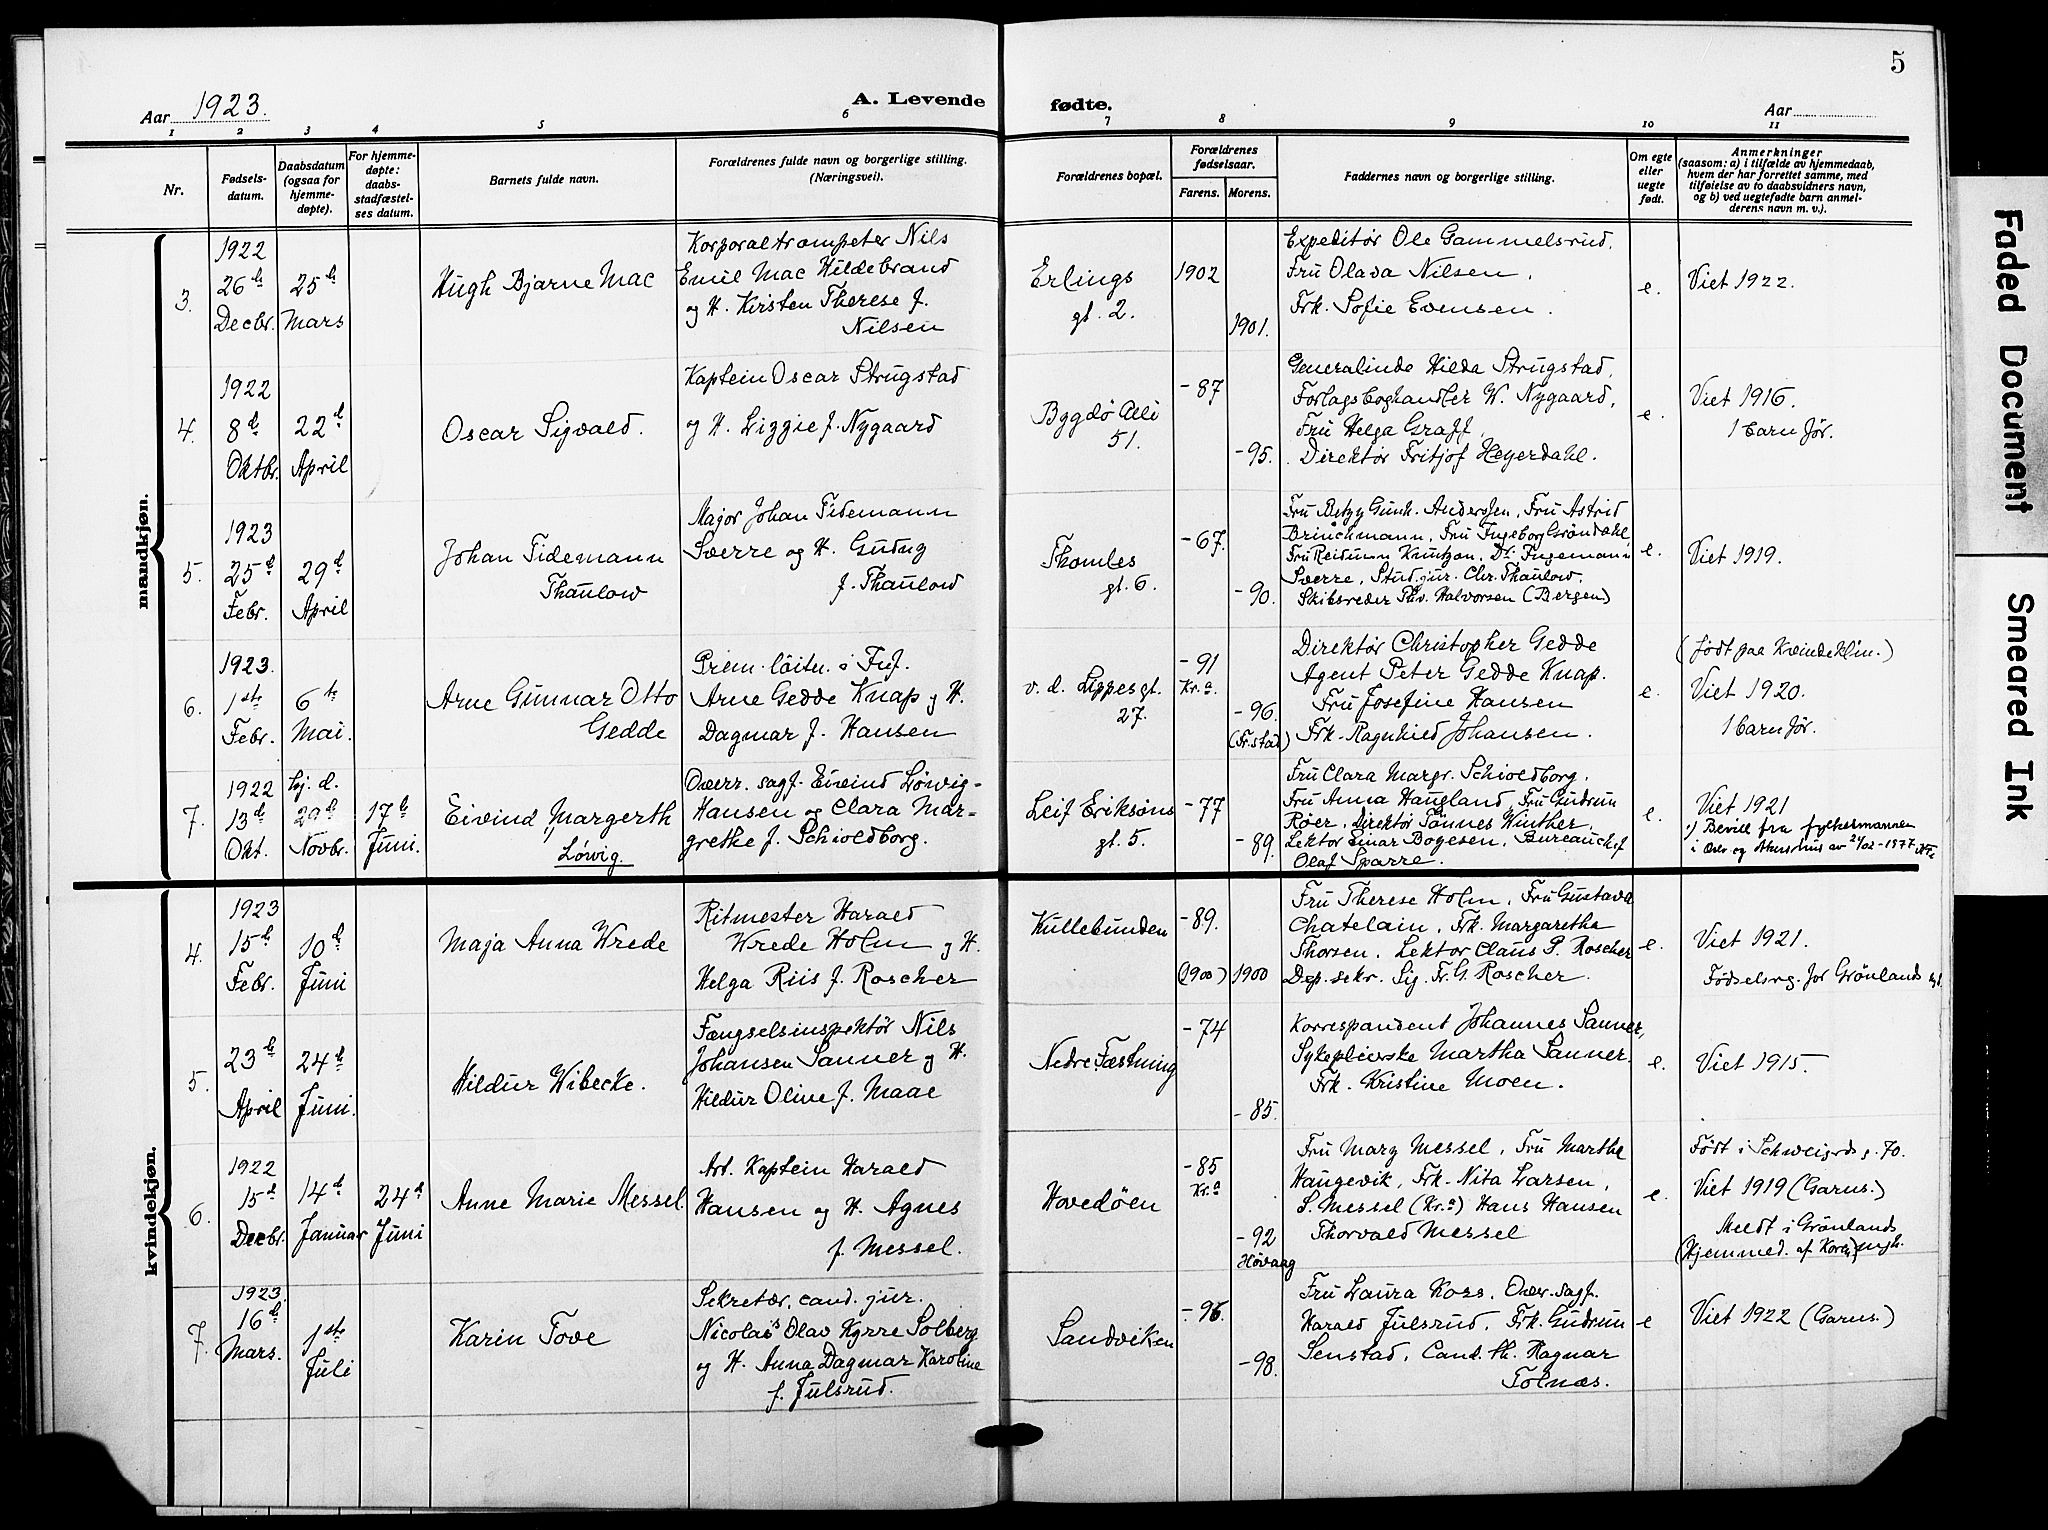 5
Aar 1923.
A. Levende fødte.
Aar
1 2 3 4 5 6 7 8 9 10 11
Nr.
Fødsels-
datum.
Daabsdatum
(ogsaa for
hjemme-
døpte).
For hjemme-
døpte:
daabs-
stadfæstel-
ses datum.
Barnets fulde navn.
Forældrenes fulde navn og borgerlige stilling.
(Næringsvei).
Forældrenes bopæl.
Forældrenes
fødselsaar.
Farens. Morens.
Faddernes navn og borgerlige stilling.
Om egte
eller
uegte
født.
Anmerkninger
(saasom: a) i tilfælde av hjemmedaab,
hvem der har forrettet samme, med
tilføielse av to daabsvidners navn,
og b) ved uegtefødte barn anmel-
derens navn m. v.).
mandkjøn.
3.
1922
26de
Decbr.
25de
Mars
Hugh Bjarne Mac
Korporaltrompeter Nils
Emil Mac Hildebrand
og H. Kirsten Therese f.
Nilsen
Erlings
gt. 2.
1902
1901.
Expeditør Ole Gammelsrud.
Fru Olava Nilsen.
Frk. Sofie Evensen.
e.
Viet 1922.
4.
1922
8de
Oktbr.
22de
April
Oscar Sigvald.
Kaptein Oscar Strugstad
og H. Lizzie f. Nygaard
Bygdø Allé
51.
-87
-95.
Generalinde Hilda Strugstad.
Forlagsboghandler W. Nygaard,
Fru Helga Graff.
Direktør Fritjof Heyerdahl.
e.
Viet 1916.
1 barn før.
5.
1923
25de
Febr.
29de
April
Johan Tidemann
Thaulow
Major Johan Tidemann
Sverre og H. Gudny
f. Thaulow
Thomles
gt. 6.
-67.
-90.
Fru Betzy Gunh. Andersen, Fru Astrid
Brinchmann, Fru Ingeborg Grøndahl,
Fru Reidunn Knutzon, Dr. Ingemann
Sverre, Stud. jur. Chr. Thaulow.
Skibsreder Thv. Halvorsen (Bergen)
e.
Viet 1919.
6.
1923.
1ste
Febr.
6te
Mai.
Arne Gunnar Otto
Gedde
Prem. løitn. i Inf.
Arne Gedde Knap og H.
Dagmar f. Hansen
v. d. Lippesgt.
27.
-91
Kr.a
-96.
(Fr.stad)
Direktør Christopher Gedde
Agent Peter Gedde Knap.
Fru Josefine Hansen
Frk. Ragnhild Johansen.
e.
(født paa Kvindeklin.)
Viet 1920.
1 barn før.
7.
1922
13de
Okt.
hj. d.
29de
Novbr.
17de
Juni.
Eivind Margerth
Løvig.
Overr. sagf. Eivind Løvig-
Hansen og Clara Mar-
grethe f. Schioldborg.
Leif Eriksøns
gt. 5.
-77
-89.
Fru Clara Margr. Schioldborg.
Fru Anna Haugland, Fru Gudrun
Røer, Direktør Tønnes Winther,
Lektor Einar Bogesen, Bureauchef
Olaf Sparre.
e.
Viet 1921
1) Bevill fra fylkesmannen
i Oslo og Akershus av
kvindekjøn.
4.
1923
15de
Febr.
10de
Juni
Maja Anna Wrede
Ritmester Harald
Wrede Holm og H.
Helga Riis f. Roscher
Hullebunden
-89.
(1900)
1900
Fru Therese Holm, Fru Gustava
Chatelain, Frk. Margaretha
Thorsen, Lektor Claus P. Roscher
Dep. sekr. Sig. Fr. G. Roscher.
e.
Viet 1921.
Fødselsrg. for Grønlands
5.
23de
April
24de
Juni.
Hildur Wibecke.
Fængselsinspektør Nils
Johansen Sanner og H.
Hildur Oline f. Maae
Nedre Fæstning
-74
-85.
Korrespondent Johannes Sanner,
Sykepleierske Martha Sanner.
Frk. Kristine Moen.
e.
Viet 1915.
6.
1922
15de
Decbr.
14de
Januar
24de
Juni
Anne Marie Messel.
Art. Kaptein Harald
Hansen og H. Agnes
f. Messel.
Hovedøen
-85
Kr.a
-92
Høvaag
Fru Marg Messel, Fru Marthe
Haugevik, Frk. Nita Larsen,
S. Messel (Kr.a) Hans Hansen
Thorvald Messel
e.
Født i Schweigrds g. 70.
Viet 1919 (Garns.)
Meldt i Grønlands
(Hjemmed. af Koren) mgh.
7.
1923.
16de
Mars.
1ste
Juli
Karin Tove
Sekretær, cand. jur.
Nicolai Olav Kyrre Solberg
og H. Anna Dagmar Karoline
f. Julsrud.
Sandviken
-96.
-98.
Fru Laura Koss, Over. sagf.
Harald Julsrud, Frk. Gudrun
Senstad, Cand. th. Ragnar
Tolnæs.
e
Viet 1922 (Garns.)
Faded Document
Smeared Ink